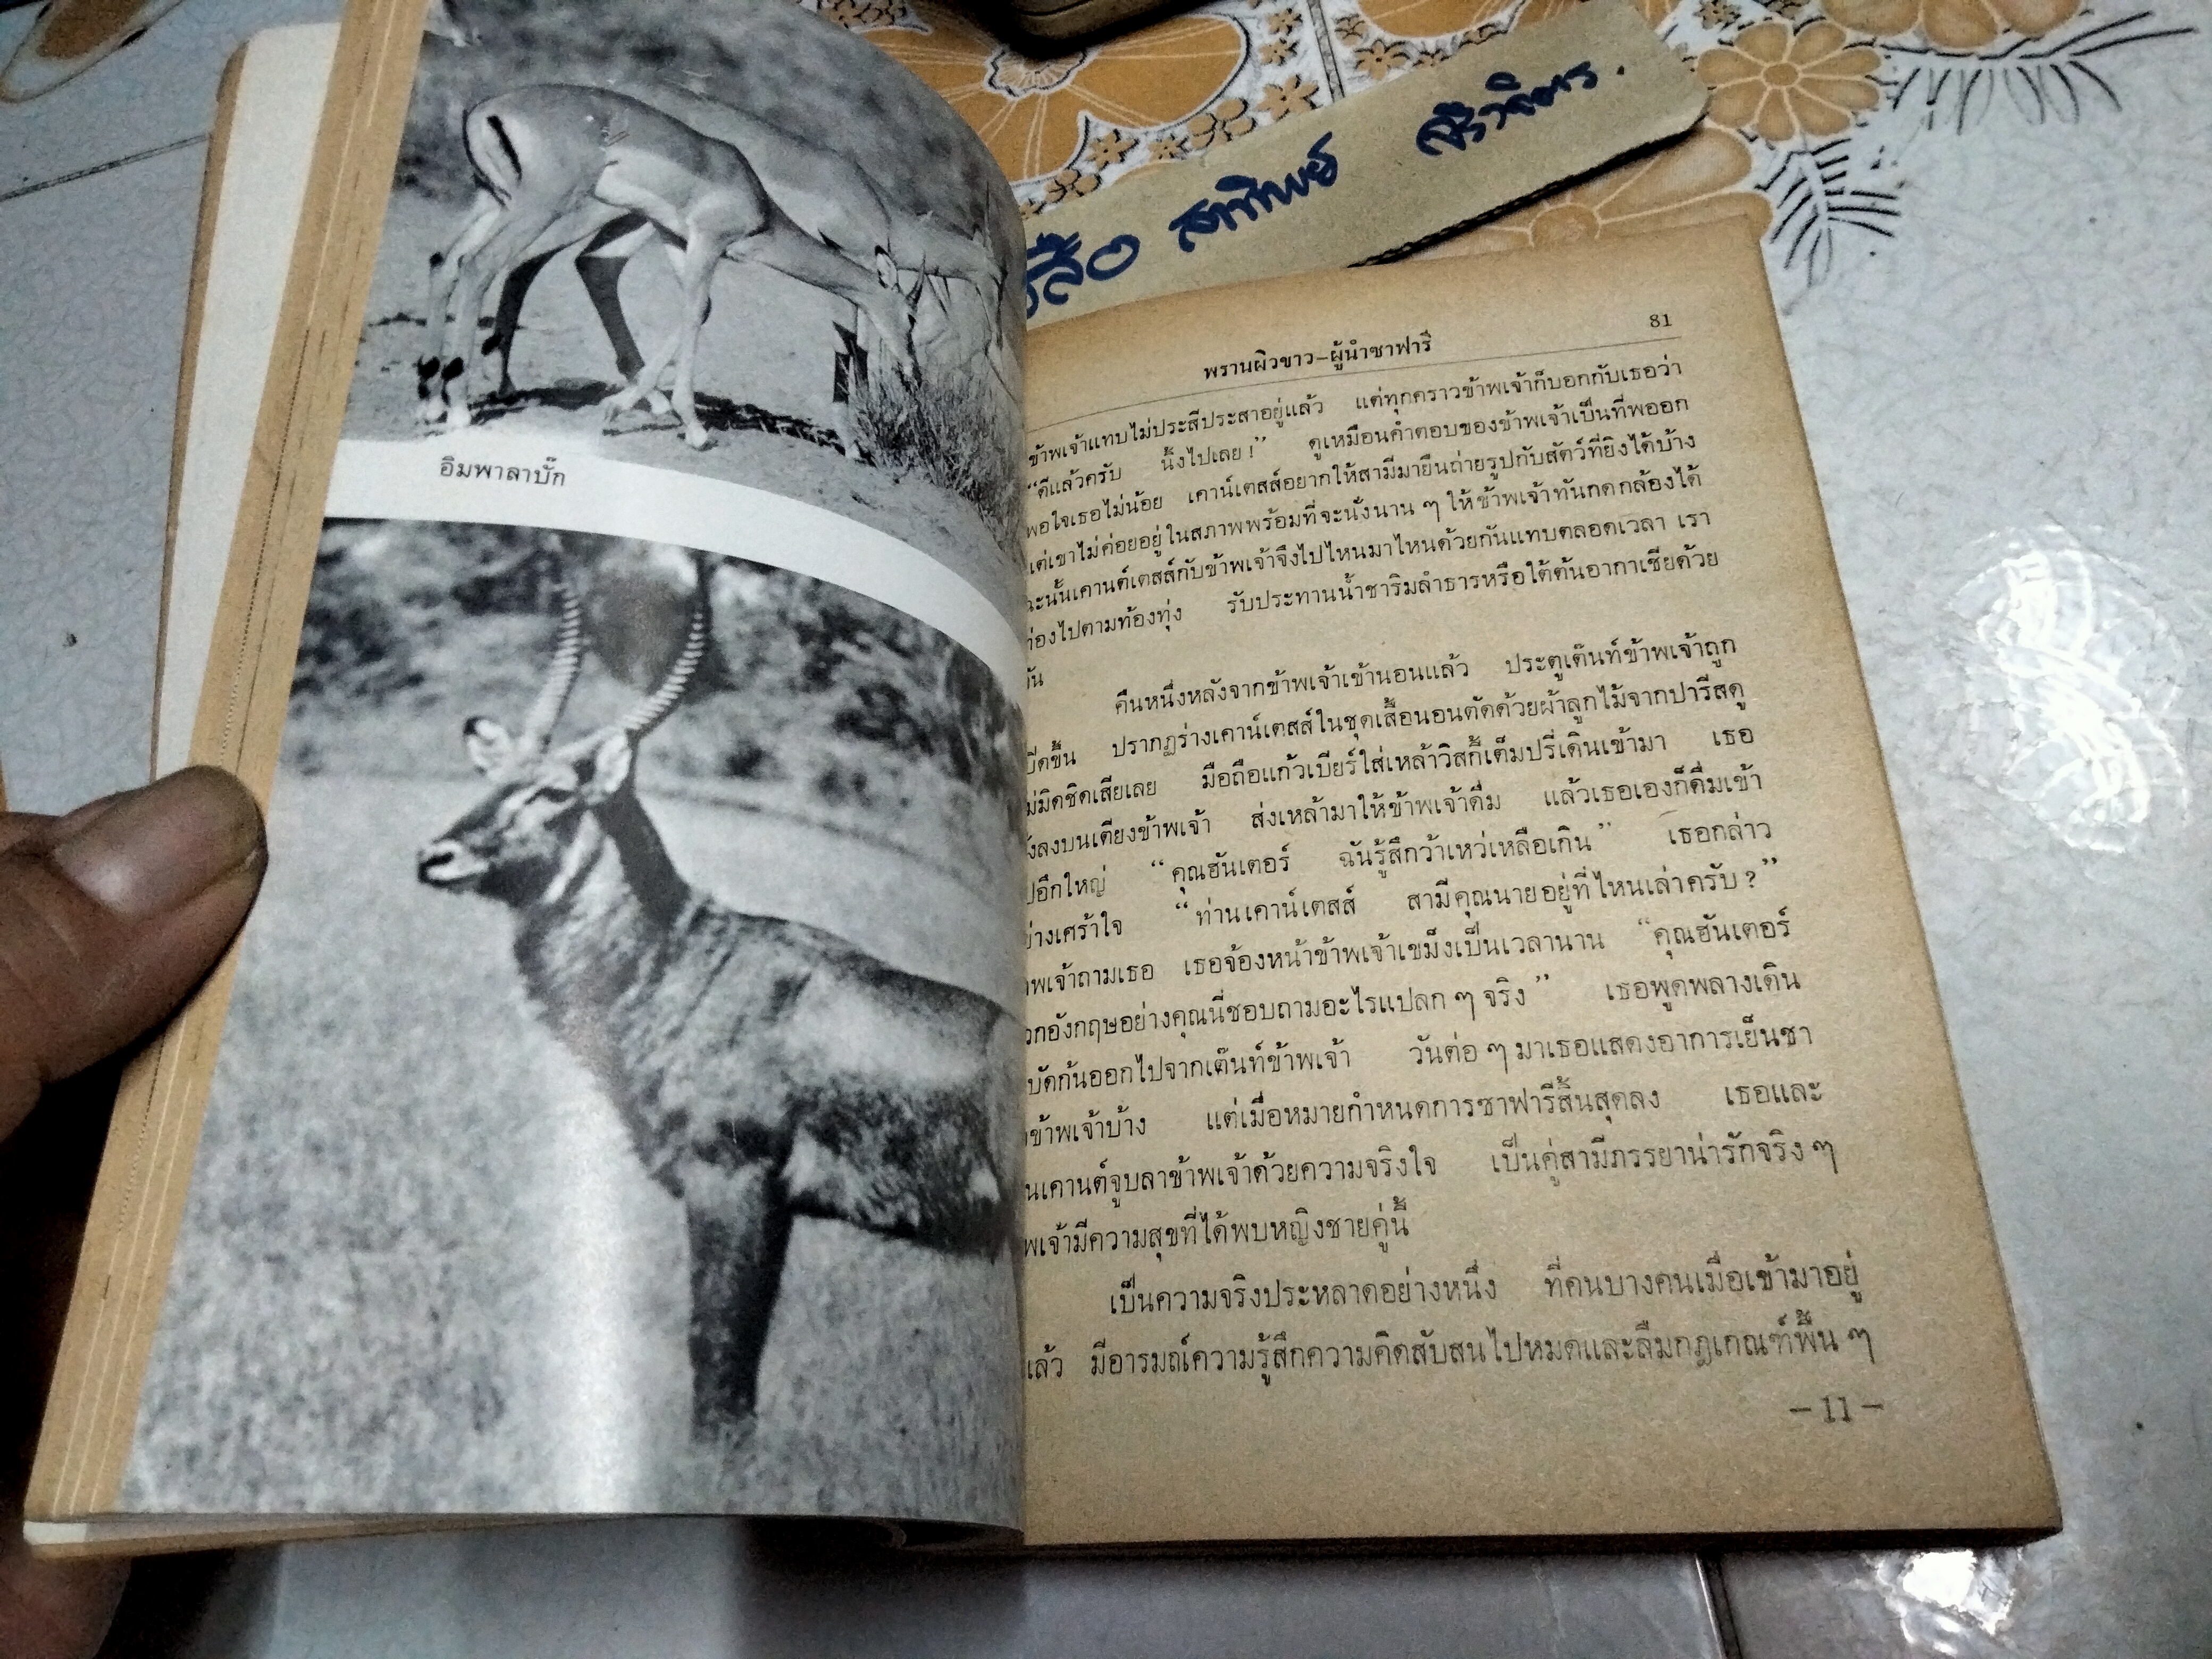 สาทิพย์
อิมพาลาบั๊ก
81
พรานผิวขาว–ผู้นำซาฟารี
ข้าพเจ้าแทบไม่ประสีประสาอยู่แล้ว แต่ทุกคราวข้าพเจ้าก็บอกกับเธอว่า
“ดีแล้วครับ นิ้งไปเลย !” ดูเหมือนคำตอบของข้าพเจ้าเป็นที่พออก
พอใจเธอไม่น้อย เคาน์เตสส์อยากให้สามีมายืนถ่ายรูปกับสัตว์ที่ยิงได้บ้าง
แต่เขาไม่ค่อยอยู่ในสภาพพร้อมที่จะนั่งนาน ๆ ให้ข้าพเจ้าทันกดกล้องได้
ฉะนั้นเคานต์เตสส์กับข้าพเจ้าจึงไปไหนมาไหนด้วยกันแทบตลอดเวลา เรา
ท่องไปตามท้องทุ่ง รับประทานน้ำชาริมลำธารหรือใต้ต้นอากาเซียด้วย
กัน
คืนหนึ่งหลังจากข้าพเจ้าเข้านอนแล้ว ประตูเต๊นท์ข้าพเจ้าถูก
ปรากฏร่างเคาน์เตสส์ในชุดเสื้อนอนตัดด้วยผ้าลูกไม้จากปารีสดู
มิดชิดเสียเลย มือถือแก้วเบียร์ใส่เหล้าวิสกี้เต็มปรี่เดินเข้ามา เธอ
ลงบนเตียงข้าพเจ้า ส่งเหล้ามาให้ข้าพเจ้าดื่ม แล้วเธอเองก็ดื่มเข้า
อึกใหญ่ “คุณฮันเตอร์ ฉันรู้สึกว้าเหว่เหลือเกิน” เธอกล่าว
เศร้าใจ “ท่านเคาน์เตสส์ สามีคุณนายอยู่ที่ไหนเล่าครับ ?”
พเจ้าถามเธอ เธอจ้องหน้าข้าพเจ้าเขม็งเป็นเวลานาน “คุณฮันเตอร์
วกอังกฤษอย่างคุณนี่ชอบถามอะไรแปลก ๆ จริง” เธอพูดพลางเดิน
บัดก้นออกไปจากเต๊นท์ข้าพเจ้า วันต่อ ๆ มาเธอแสดงอาการเย็นชา
ข้าพเจ้าบ้าง แต่เมื่อหมายกำหนดการซาฟารีสิ้นสุดลง เธอและ
นเคานต์จูบลาข้าพเจ้าด้วยความจริงใจ เป็นคู่สามีภรรยาน่ารักจริง ๆ
พเจ้ามีความสุขที่ได้พบหญิงชายคู่นี้
เป็นความจริงประหลาดอย่างหนึ่ง ที่คนบางคนเมื่อเข้ามาอยู่
แล้ว มีอารมณ์ความรู้สึกความคิดสับสนไปหมดและลืมกฎเกณฑ์พื้น ๆ
– 11 –